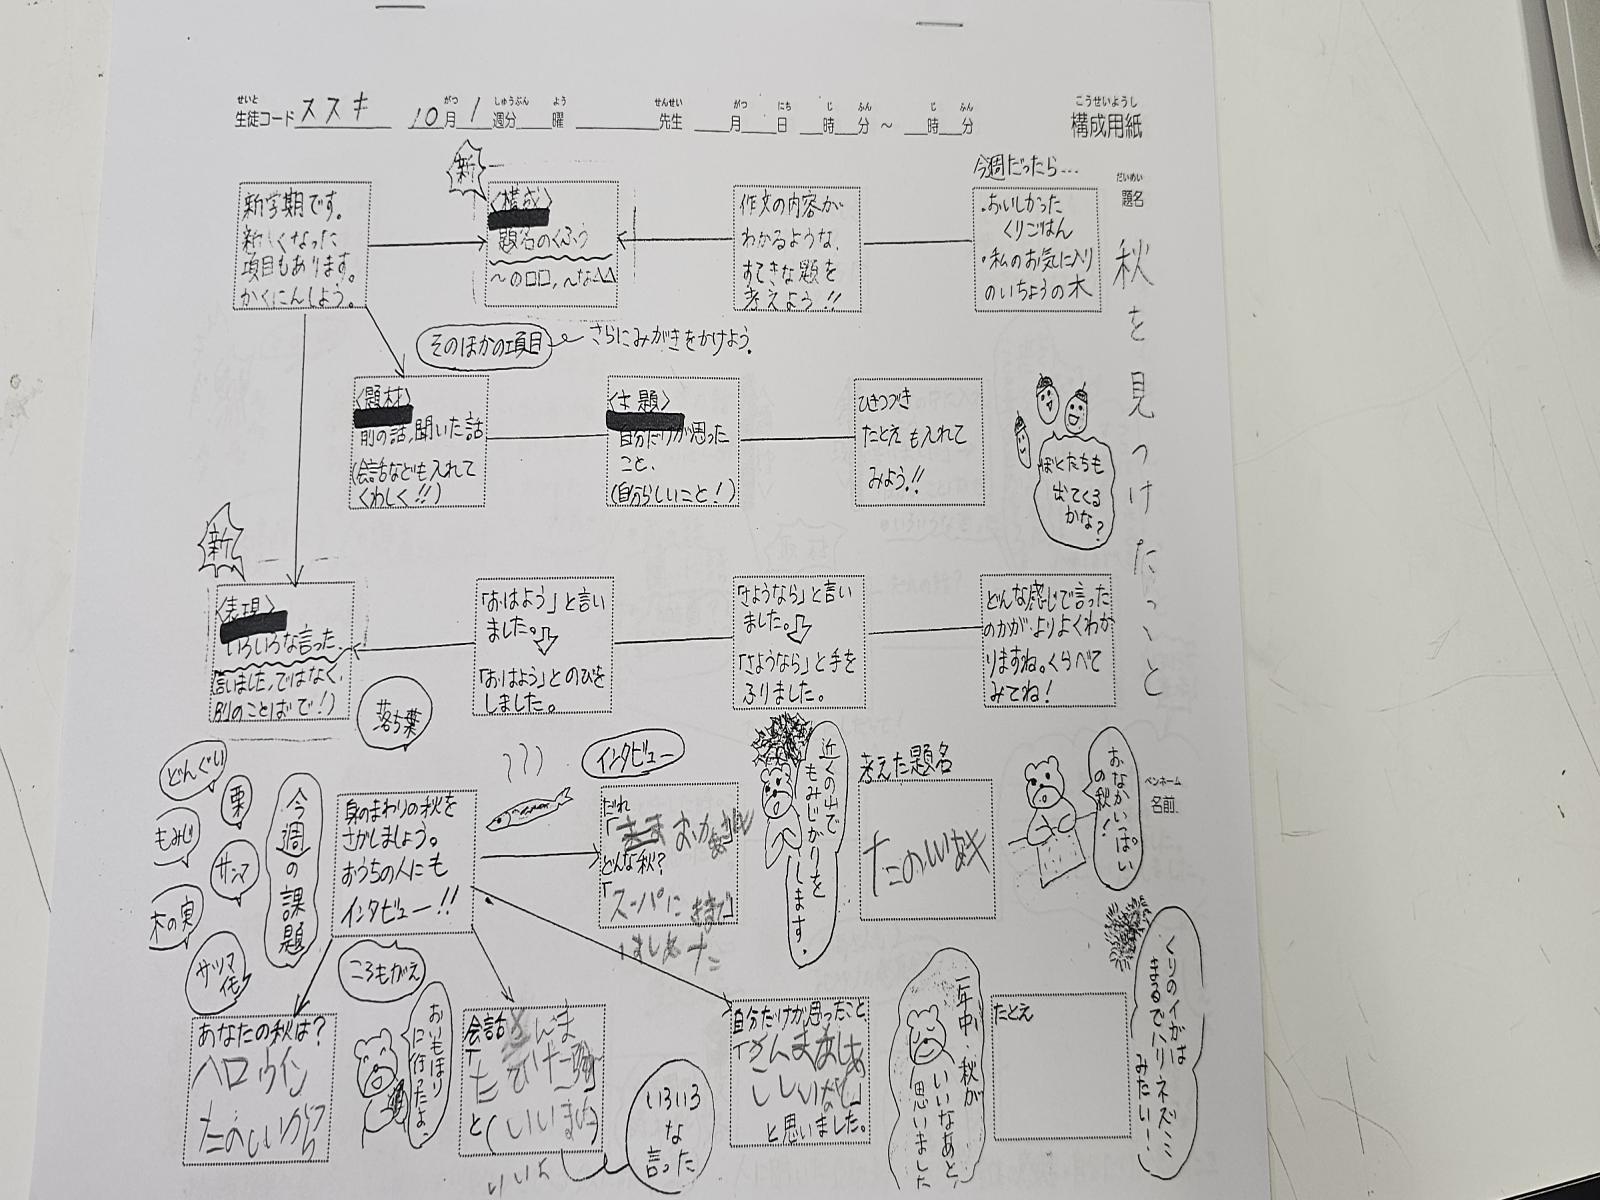 せいと
生徒コード ススキ
がつ しゅうぶん よう
10月 1 週分 曜
せんせい
先生
がつ にち じ ふん じ ふん
月 日 時 分 ～ 時 分
こうせいようし
構成用紙
だいめい
題名
秋を見つけたこと
新学期です。
新しくなった
項目もあります。
かくにんしよう。
新
〈構成〉
題名のくふう
～の□□,～な△△
作文の内容が
わかるような、
すてきな題を
考えよう!!
今週だったら…
・おいしかった
くりごはん
・私のお気に入り
のいちょうの木
そのほかの項目
さらにみがきをかけよう。
〈題材〉
前の話,聞いた話
(会話なども入れて
くわしく!!)
〈主題〉
自分だけが思った
こと、
(自分らしいこと!)
ひきつづき
たとえも入れて
みよう!!
ぼくたちも
出てくる
かな?
新
〈表現〉
いろいろな言った、
(言いました,ではなく、
別のことばで!)
「おはよう」と言い
ました。
「おはよう」とのびを
しました。
「さようなら」と言い
ました。
「さようなら」と手を
ふりました。
どんな感じで言った
のかが、よりよくわか
りますね。くらべて
みてね!
落ち葉
どんぐり
栗
もみじ
サンマ
木の実
サツマイモ
今週の課題
身のまわりの秋を
さがしましょう。
おうちの人にも
インタビュー!!
インタビュー
だれ
どんな秋?
「スーパに
近くの山で
もみじがりを
します。
考えた題名
たのしい秋
おなかいっぱい
の秋!
ペンネーム
名前
あなたの秋は?
ハロウイン
たのしいから
ころもがえ
おいもほり
に行ったよ。
会話
「
と(いいました)
いろいろ
な
言った
自分だけが思ったこと、
「さんま
と思いました。
一年中、秋が
いいなあと、
思いました
たとえ
くりのイガは
まるでハリネズミ
みたい!